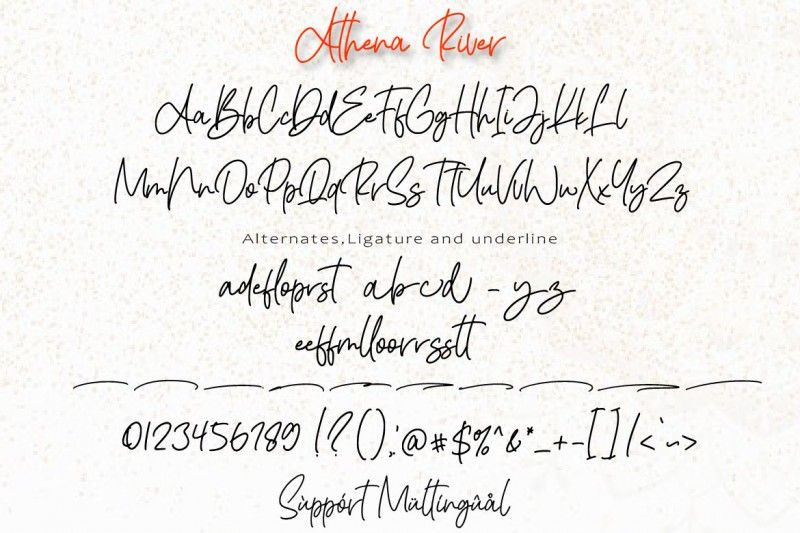 Athena River
AaBbCcDdEeFfGgHhIiJjKkLl
MmNnOoPpQqRrSsTtUuVvWwXxYyZz
Alternates,Ligature and underline
adefloprst abcd - yz
eeffmlloorrsstt
0123456789 !?();:@#$%^&*_+-[]/<`~>
Sùppórt Mültingûål